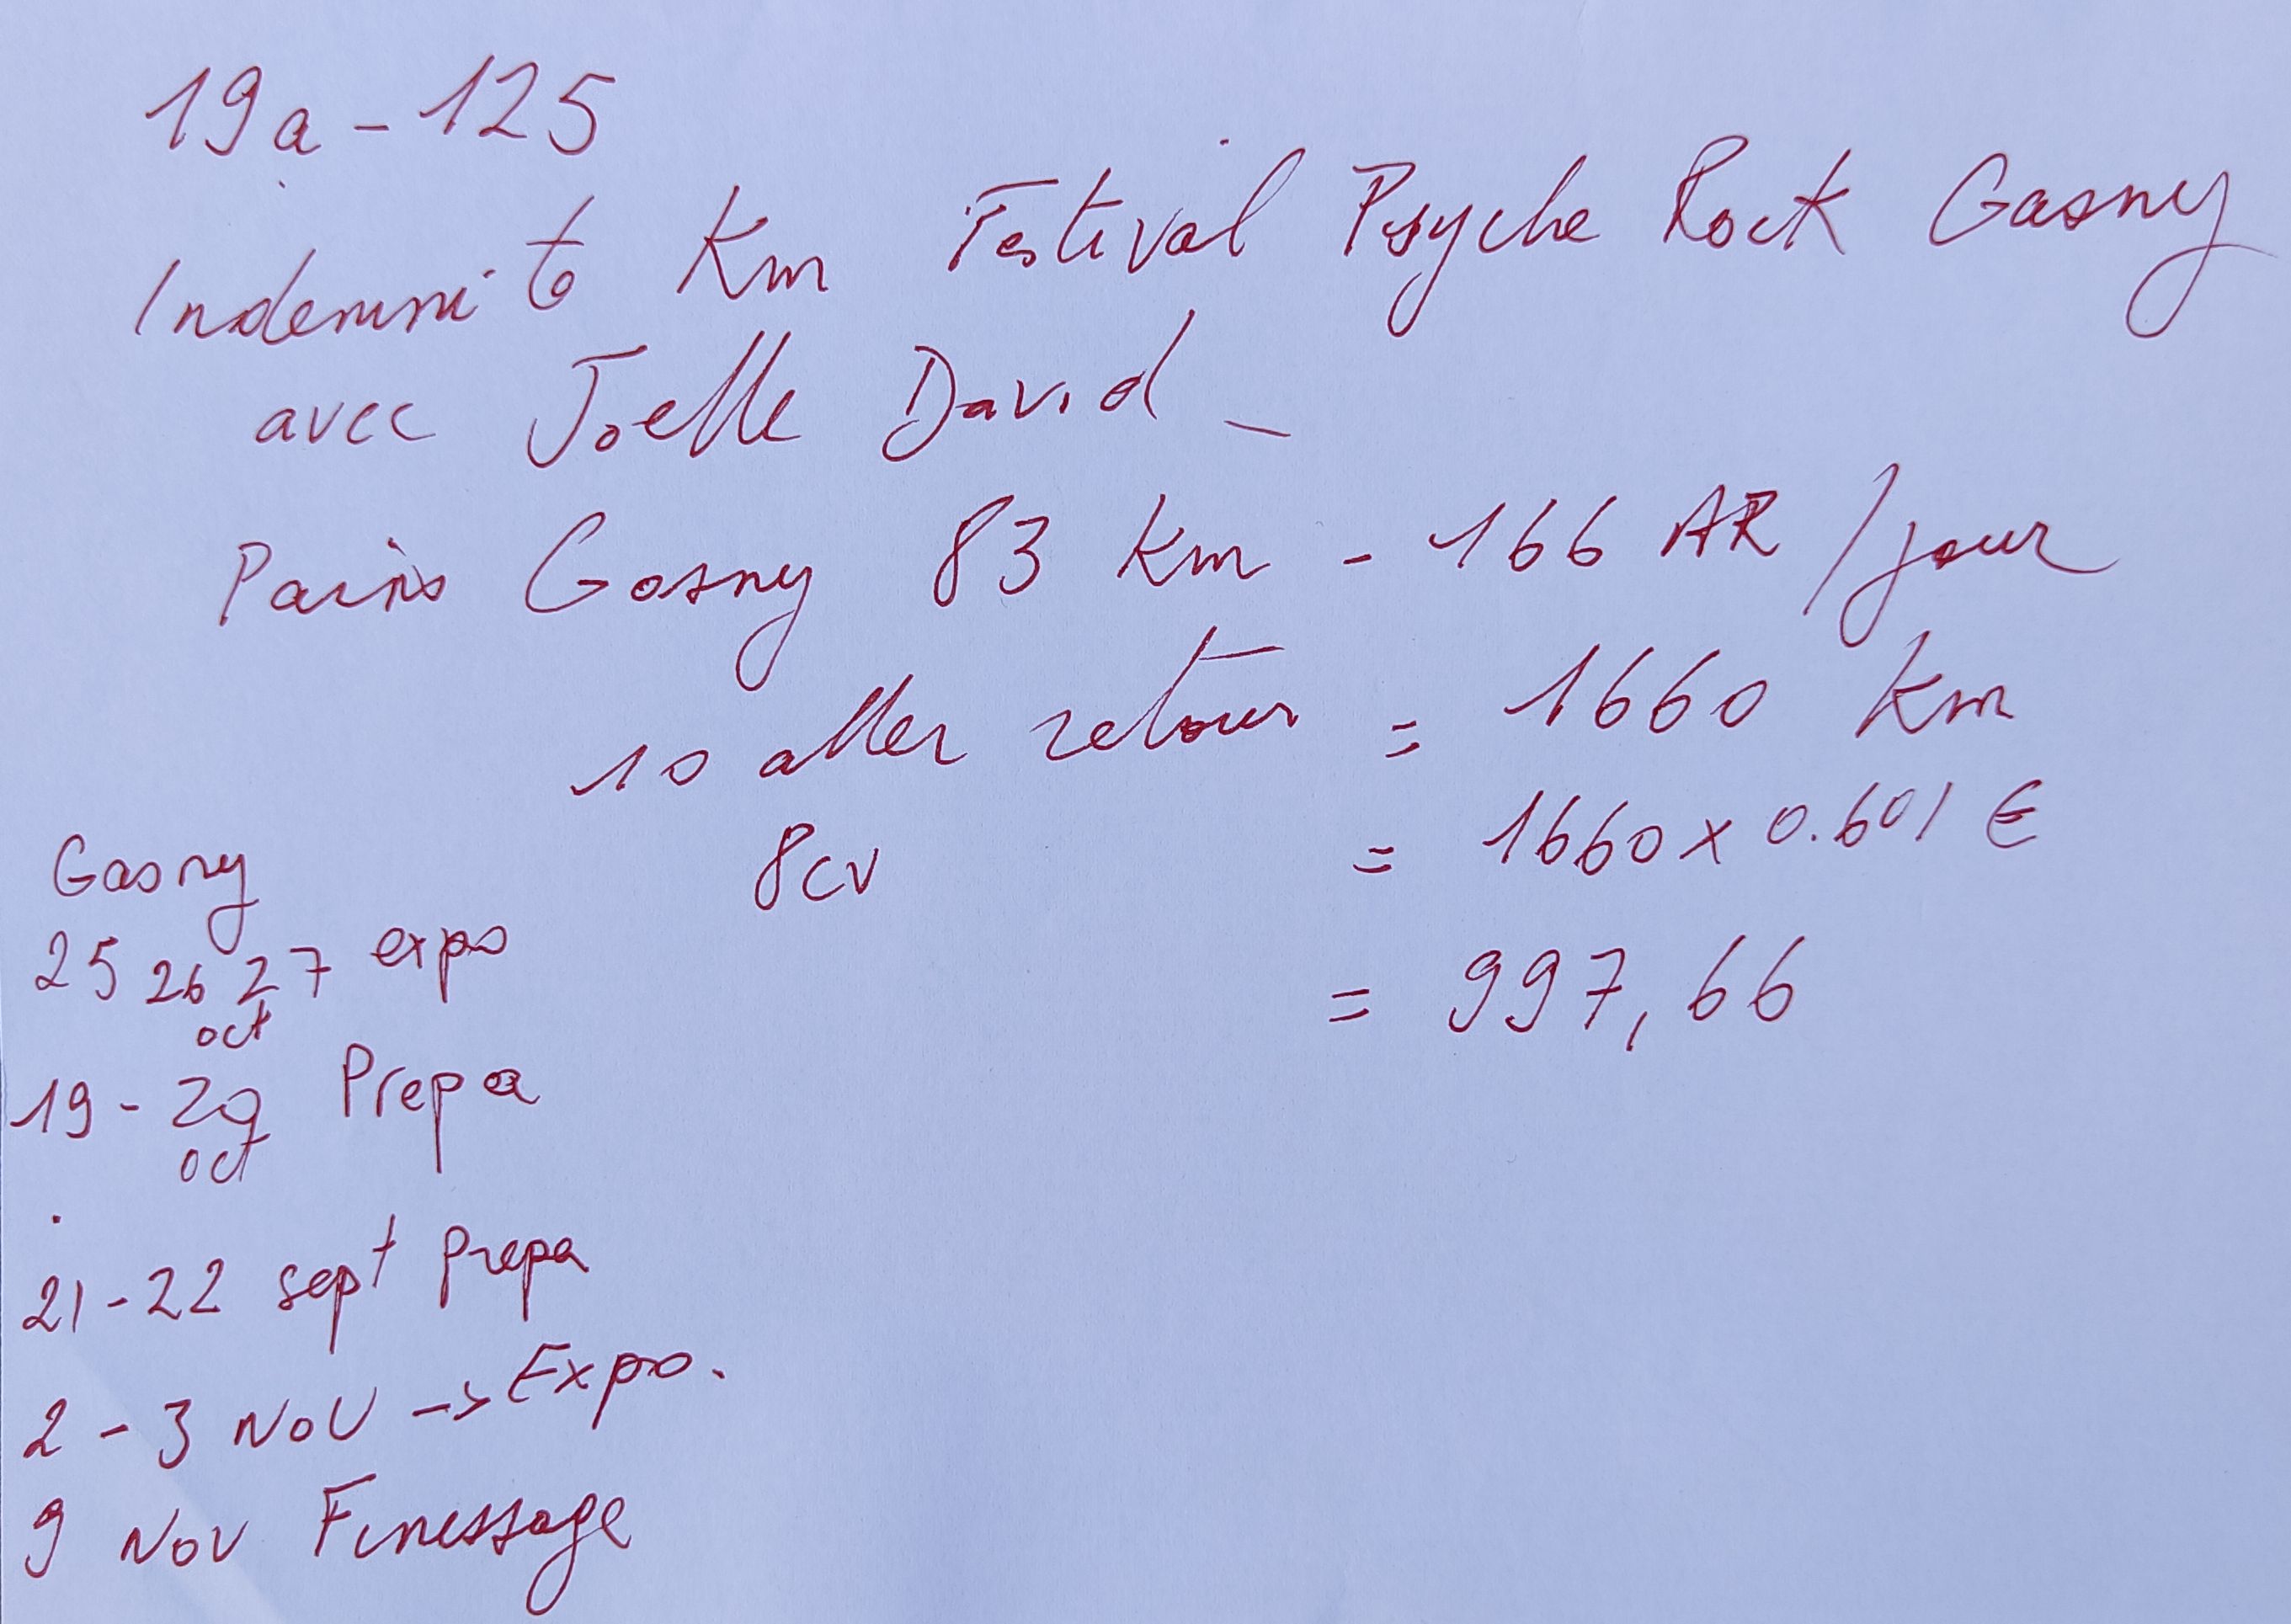 19a - 125
Indemnité Km Festival Psyche Rock Gasny
avec Joelle David -
Paris Gasny 83 Km - 166 AR /jour
10 aller retour = 1660 Km
8cv = 1660 x 0.601 €
= 997,66
Gasny
25 26 27 expo
oct
19 - 20 Prepa
oct
21-22 sept prepa
2 - 3 NOV -> Expo.
9 NOV Finessage